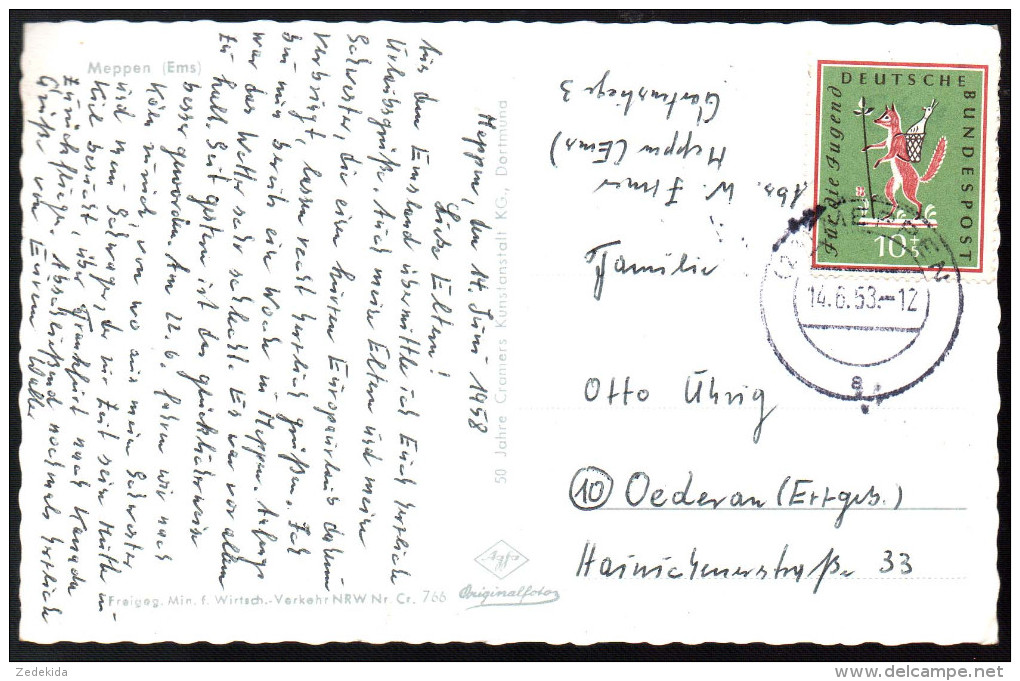 Meppen (Ems)
Meppen, den 14. Juni 1958
Liebe Eltern!
Aus dem Emsland übermittle ich Euch herzliche
Urlaubsgrüße. Auch meine Eltern und meine
Schwester, die einen kurzen Europaurlaub daheim
verbringt, lassen recht herzlich grüßen. Ich
bin nun bereits eine Woche in Meppen. Anfangs
war das Wetter sehr schlecht. Es war vor allem
zu kalt. Seit gestern ist es glücklicherweise
besser geworden. Am 22.6. fahren wir nach
Köln zurück, von wo aus meine Schwester
und mein Schwager, der zur Zeit seine Mutter in
Kiel besucht, über Frankfurt nach Kanada
zurückfliegen. Abschließend nochmals herzliche
Grüße von Eurem Walter
Freigeg. Min. f. Wirtsch.-Verkehr NRW Nr. Cr. 766
50 Jahre Cramers Kunstanstalt KG, Dortmund
Agfa
Originalfoto
Abs. W.
Meppen (Ems)
3
Familie
Otto Uhrig
(10) Oederan (Erzgeb.)
Hainichenerstraße 33
DEUTSCHE
BUNDESPOST
Für die Jugend
10+5
14.6.58.-12
a
Zedekida
www.delcampe.net